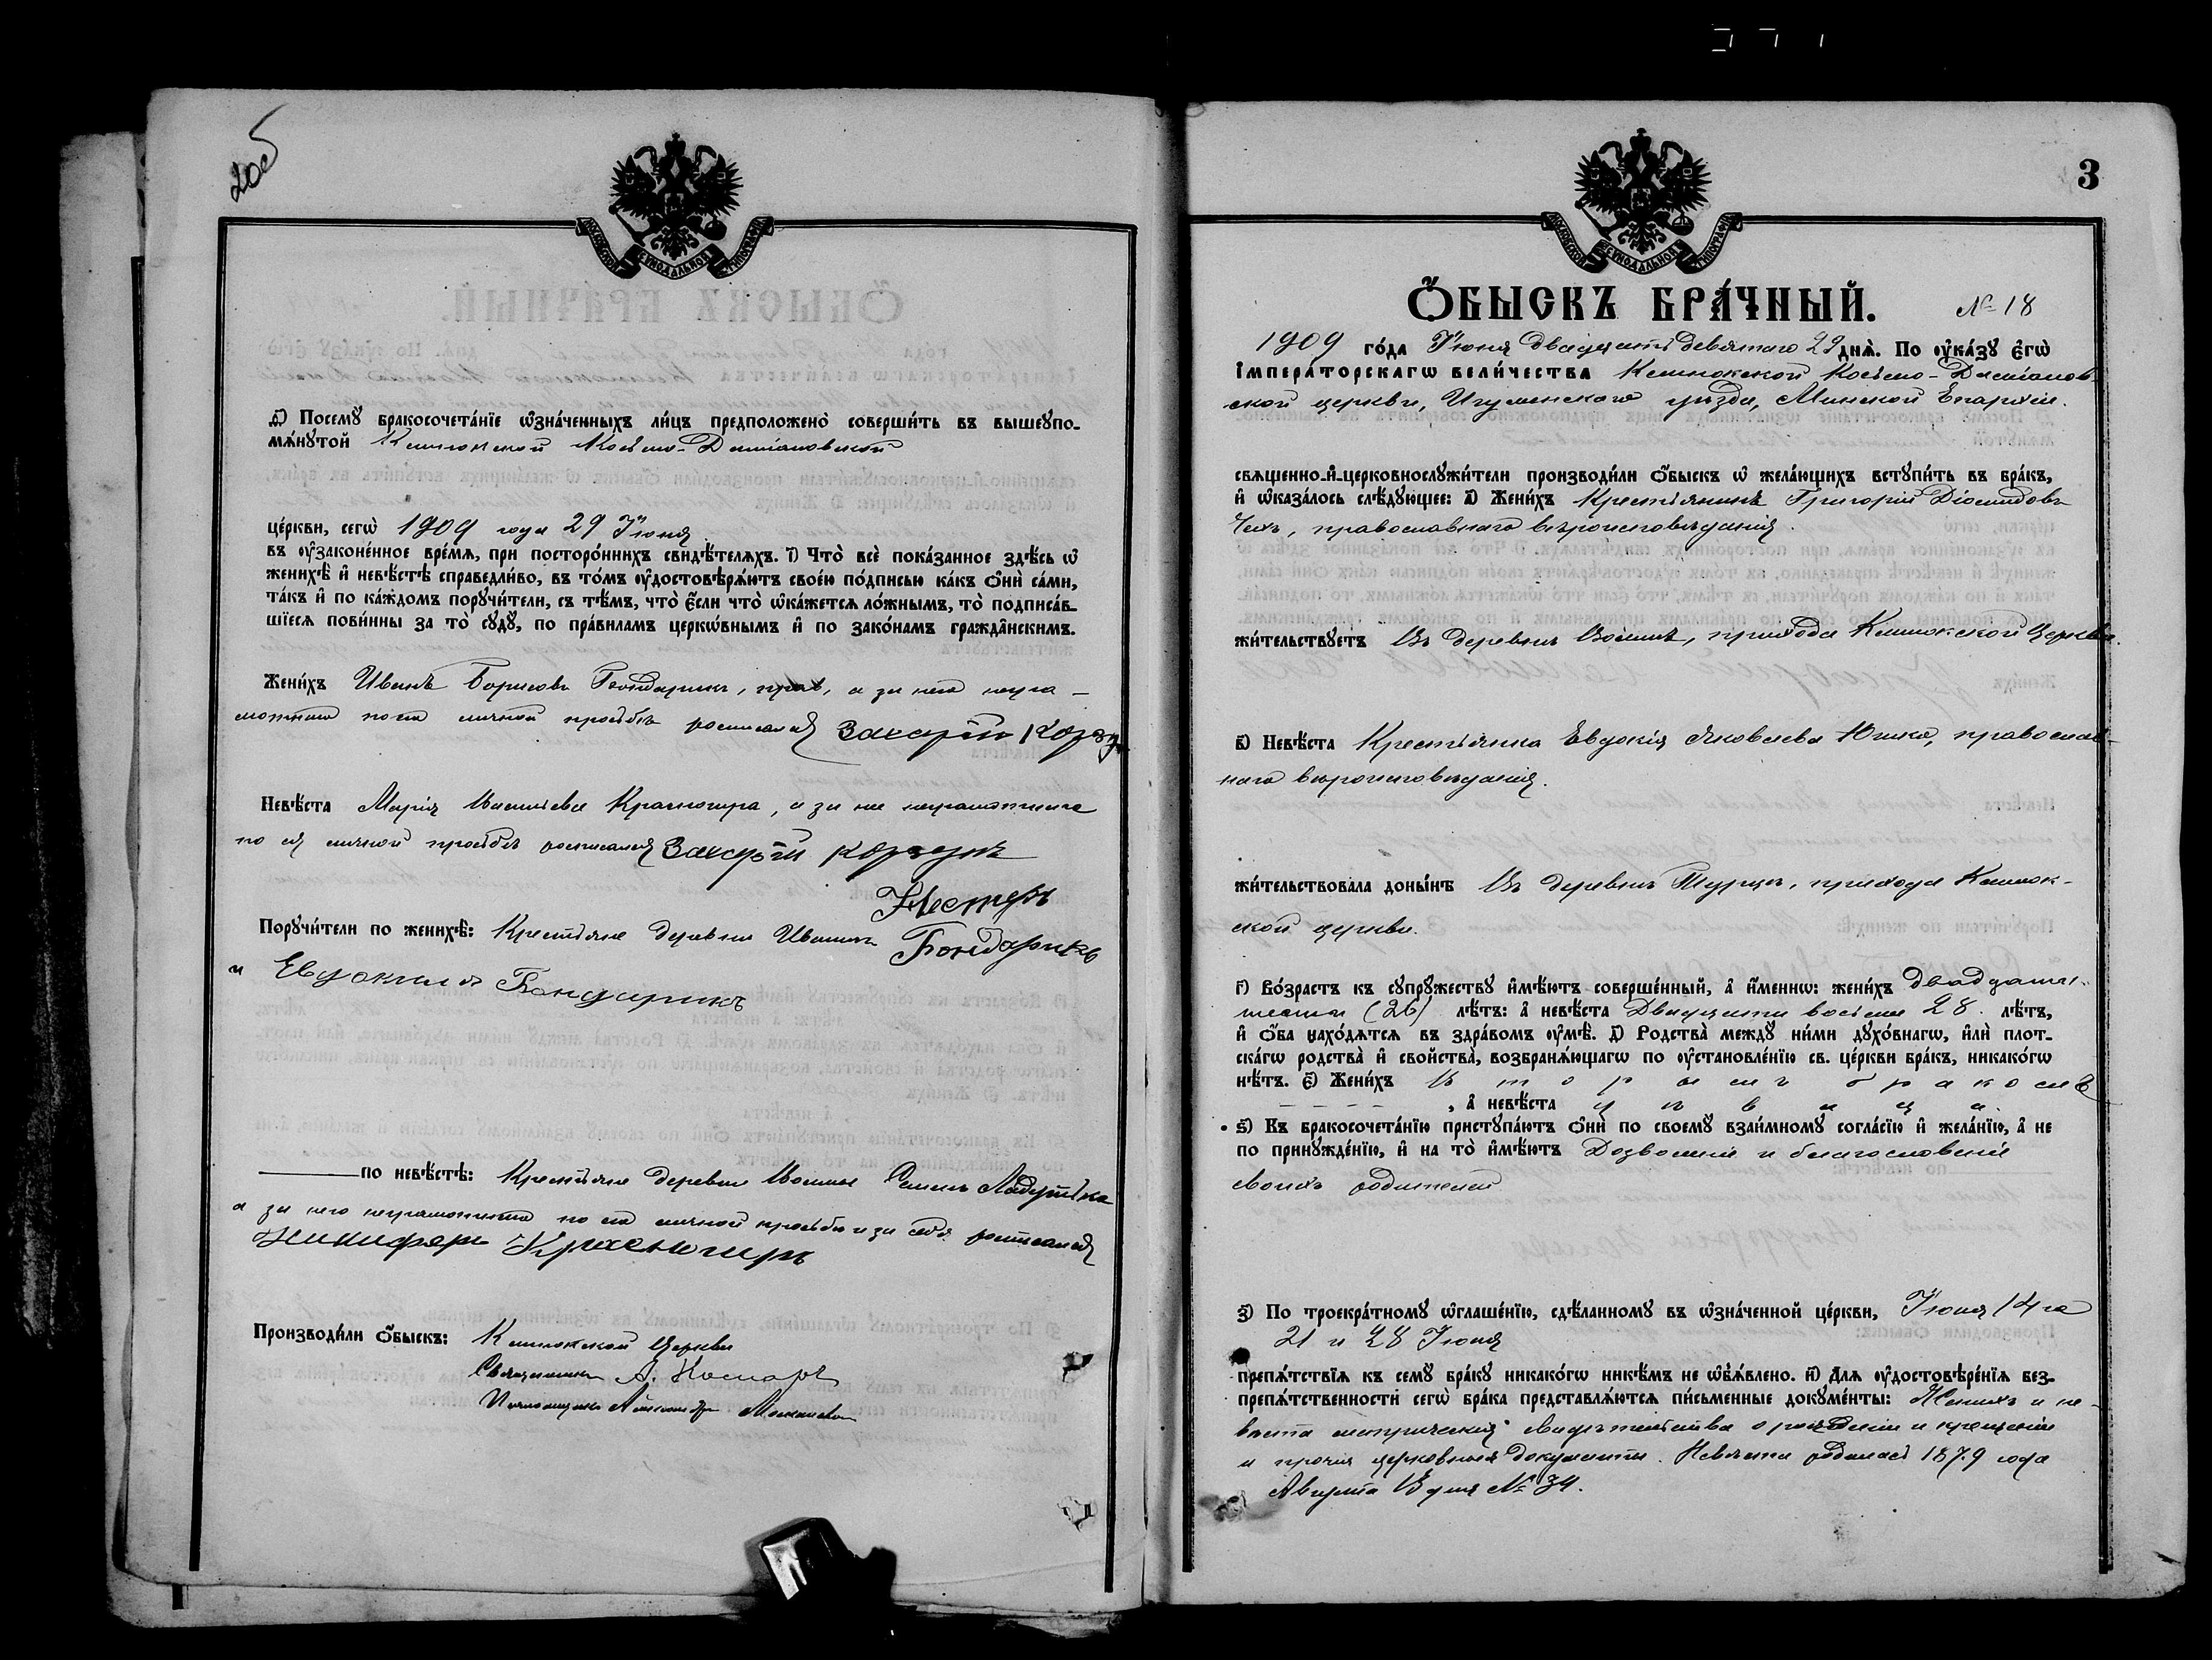 2об
МОСКОВСКОЙ СѴНОДАЛЬНОЙ ТИПОГРАФІИ
ѳ҃) Посемꙋ̀ бракосочета́нїе ѡ҆зна́ченныхъ ли́цъ предположено̀ соверши́ть въ вышеꙋпо-
мѧ́нꙋтой Клинокской Косьмо-Даміановской
це́ркви, сегѡ̀ 1909 года 29 Іюня
въ ᲂу҆законе́нное вре́мѧ, при посторо́ннихъ свидѣ́телѧхъ. і҃) Что̀ всѐ пока́занное здѣ́сь ѡ҆
женихѣ̀ и҆ невѣ́стѣ справедли́во, въ то́мъ ᲂу҆достовѣрѧ́ютъ свое́ю по́дписью ка́къ ѻ҆нѝ са́ми,
та́къ и҆ по ка́ждомъ порꙋчи́тели, съ тѣ́мъ, что̀ є҆́сли что̀ ѡ҆ка́жетсѧ ло́жнымъ, то̀ подписа́в-
шїесѧ пови́нны за то̀ сꙋдꙋ̀, по пра́виламъ церко́внымъ и҆ по зако́намъ гражда́нскимъ.
Жени́хъ Иванъ Борисовъ Бондарикъ, а за него негра-
мотнаго по его личной просьбѣ росписался Захарій Корзу
Невѣ́ста Марія Краснощира, а за нее неграмотную
по ея личной просьбѣ росписался Захарій Корзунъ
Нестеръ
Порꙋчи́тели по женихѣ̀: Крестьяне деревни Бондарикъ
и Евдокимъ Бондарикъ
по невѣ́стѣ: Крестьяне деревни Ладутька
а за него неграмотнаго по его личной просьбѣ и за себя росписался
Никифоръ
Производи́ли ѻ҆́быскъ: Клинокской церкви
Священникъ А.
Псаломщикъ
3
МОСКОВСКОЙ СѴНОДАЛЬНОЙ ТИПОГРАФІИ
Ѻ҆́БЫСКЪ БРА́ЧНЫЙ. № 18
1909 го́да Іюня двадцать девятаго 29 днѧ̀. По ᲂу҆ка́зꙋ є҆гѡ̀
І҆мпера́торскагѡ вели́чества Клинокской Косьмо-Даміанов-
ской церкви, Игуменскаго уѣзда, Минской Епархіи.
свѧщенно-и҆-церковнослꙋжи́тели производи́ли ѻ҆́быскъ ѡ҆ жела́ющихъ встꙋпи́ть въ бра́къ,
и҆ ѡ҆каза́лось слѣ́дꙋющее: а҃) Жени́хъ Крестьянинъ Григорій Діомидовъ
Чехъ, православнаго вѣроисповѣданія.
жи́тельствꙋетъ Въ деревнѣ прихода Клинокской церкви.
в҃) Невѣ́ста Крестьянка Евдокія Яковлева Юшко, православ-
наго вѣроисповѣданія.
жи́тельствовала доны́нѣ Въ деревнѣ Турцѣ, прихода Клинок-
ской церкви.
г҃) Во́зрастъ къ сꙋпрꙋ́жествꙋ и҆мѣ́ютъ соверше́нный, а҆ и҆́меннѡ: жени́хъ двадцати-
шести (26) лѣ́тъ: а҆ невѣ́ста двадцати восьми 28. лѣ́тъ,
и҆ ѻ҆́ба нахо́дѧтсѧ въ здра́вомъ ᲂу҆мѣ̀. д҃) Родства̀ междꙋ̀ ни́ми дꙋхо́внагѡ, и҆лѝ плот-
ска́гѡ родства̀ и҆ свойства̀, возбранѧ́ющагѡ по ᲂу҆становле́нїю св. це́ркви бра́къ, никако́гѡ
нѣ́тъ. є҃) Жени́хъ вторымъ бракомъ
, а҆ невѣ́ста дѣвица.
ѕ҃) Къ бракосочета́нїю пристꙋпа́ютъ ѻ҆нѝ по своемꙋ̀ взаи́мномꙋ согла́сїю и҆ жела́нїю, а҆ не
по принꙋжде́нїю, и҆ на то̀ и҆мѣ́ютъ Дозволеніе и благословеніе
своихъ родителей
з҃) По троекра́тномꙋ ѡ҆глаше́нїю, сдѣ́ланномꙋ въ ѡ҆зна́ченной це́ркви, Іюня 14 го
21 и 28 Іюня
препѧ́тствїѧ къ семꙋ̀ бра́кꙋ никако́гѡ никѣ́мъ не ѡ҆б̾ѧ́влено. и҃) Длѧ ᲂу҆достовѣре́нїѧ без-
препѧ́тственности сегѡ̀ бра́ка представлѧ́ютсѧ пи́сьменные докꙋме́нты: Женихъ и не-
вѣста метрическія свидѣтельства о рожденіи и крещеніи
и прочія церковныя документы. Невѣста родилась 1879 года
Августа 13 дня № 34.